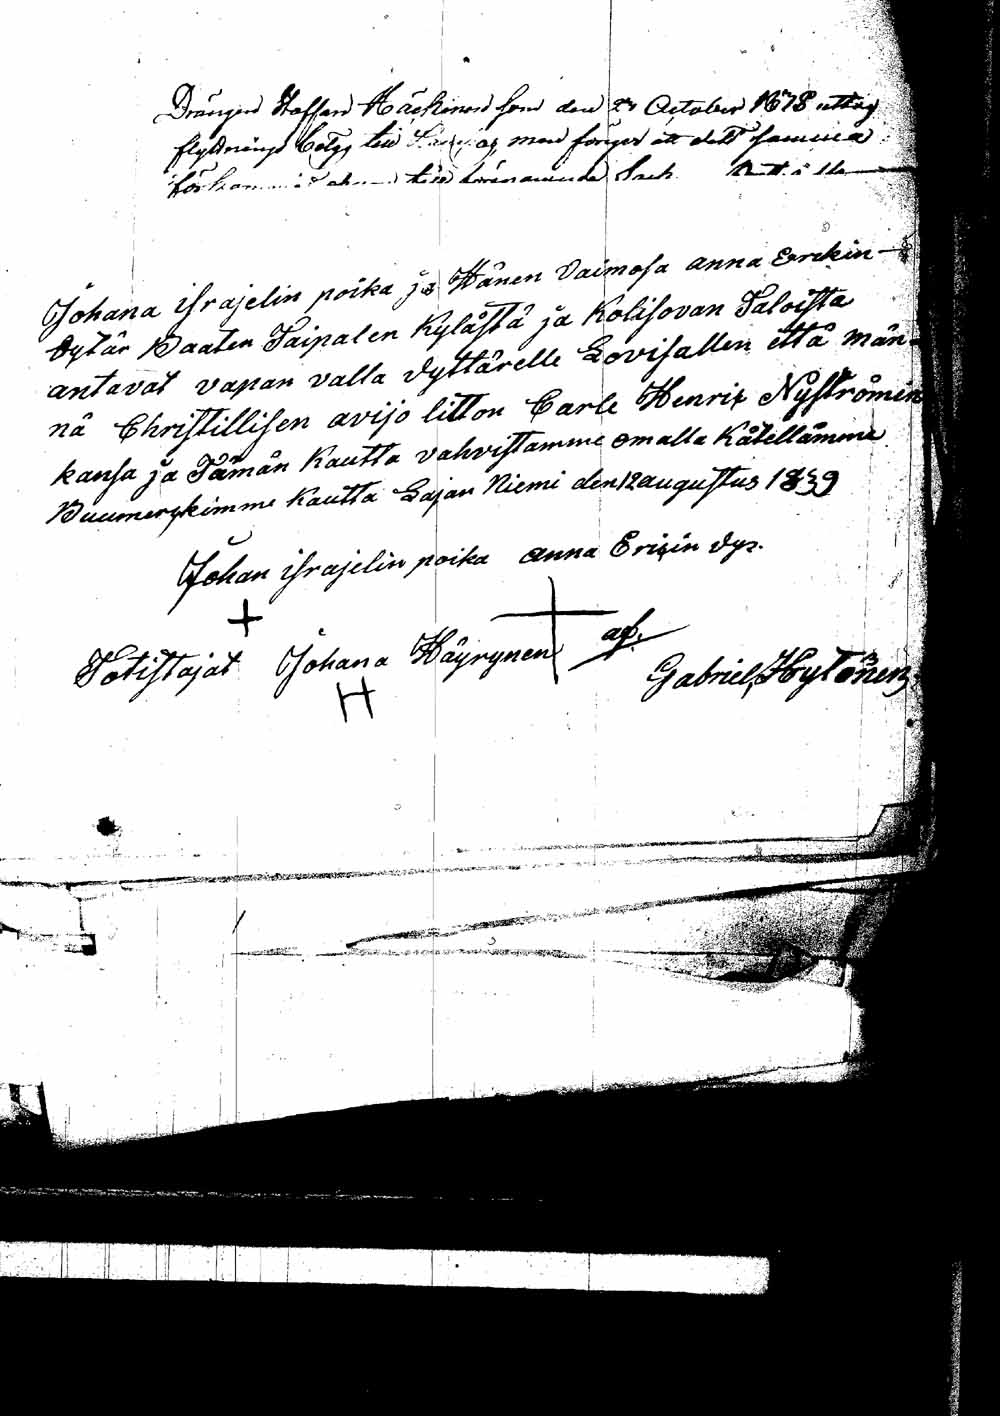 Drängen Staffan Häckinen som den 27 October 1878 uttog
flyttnings betyg till men föreger att dett samma
till
Johana israjelin poika ja Hänen Vaimosa anna Erekin-
dytär Paaten Taipalen Kylästä ja Kolisovan Taloista
antavat vapan vallan dyttärelle Lovisallen että män-
nä Christillisen avijo litton Carle Henrik Nyströmin
kansa ja Tämän Kautta vahvistamme omalla Kätellämme
Puumerykimme Kautta Lajan Niemi den 12 augustus 1839
Johan israjelin poika anna Erikin dyr.
+
Totistajat Johana Häyrynen af.
H Gabriel Hytönen